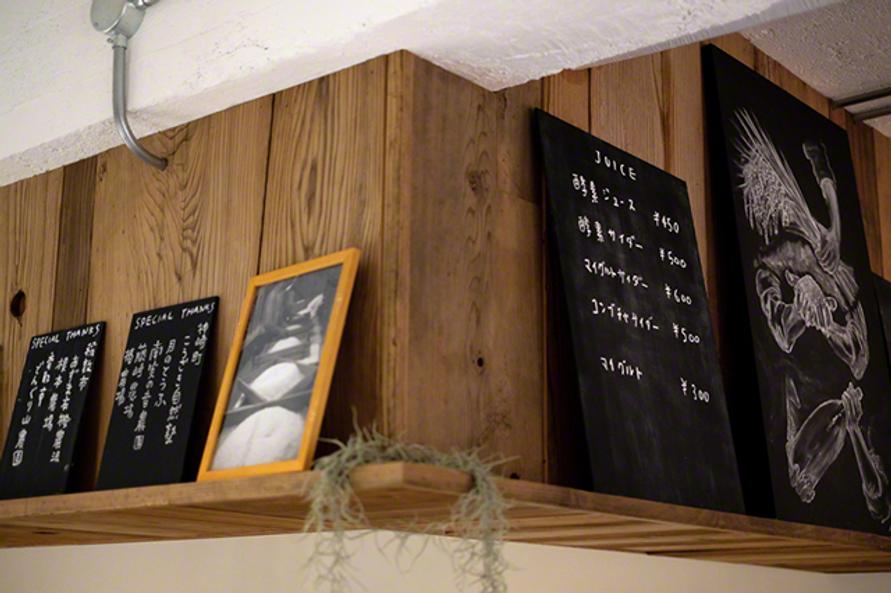 SPECIAL THANKS
稲敷市
根本農場
香取市
どんぐり山農園
SPECIAL THANKS
神崎町
こうざき自然塾
月のとうふ
藤崎農場
JUICE
酵素ジュース ¥450
酵素サイダー ¥500
マイグルトサイダー ¥600
コンブチャサイダー ¥500
マイグルト ¥300